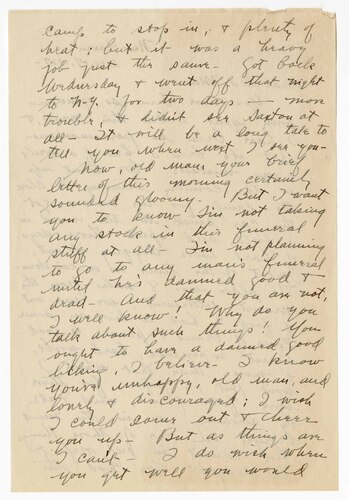 camp to stop in, & plenty of
heat; but it was a heavy
job just the same - Got back
Wednesday & went off that night
to N.Y. for two days - more
trouble, & didn't see Saxton at
all - It will be a long tale to
tell you when next I see you -
Now, old man, your brief
letter of this morning certainly
sounded gloomy. But I want
you to know I'm not taking
any stock in this funeral
stuff at all - I'm not planning
to go to any man's funeral
until he's damned good &
dead - And that you are not,
I well know! Why do you
talk about such things! You
ought to have a damned good
licking, I believe - I know
you're unhappy, old man, and
lonely & discouraged; I wish
I could come out & cheer
you up - But as things are
I can't I do wish when
you get well you would